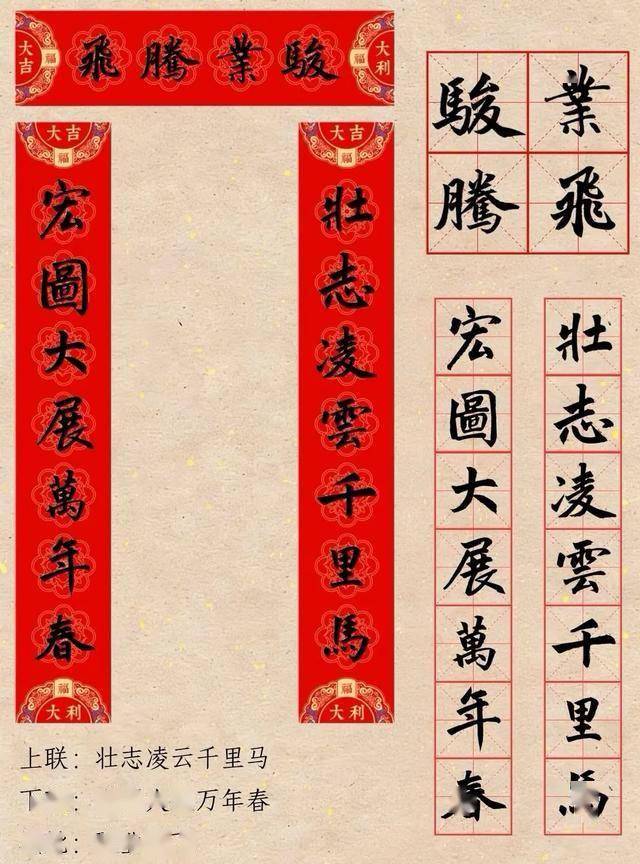 大吉
福
駿業騰飛
福
大利
大吉
福
壯志凌雲千里馬
福
大利
大吉
福
宏圖大展萬年春
福
大利
駿業
騰飛
壯志凌雲千里馬
宏圖大展萬年春
上联：壮志凌云千里马
下 万年春